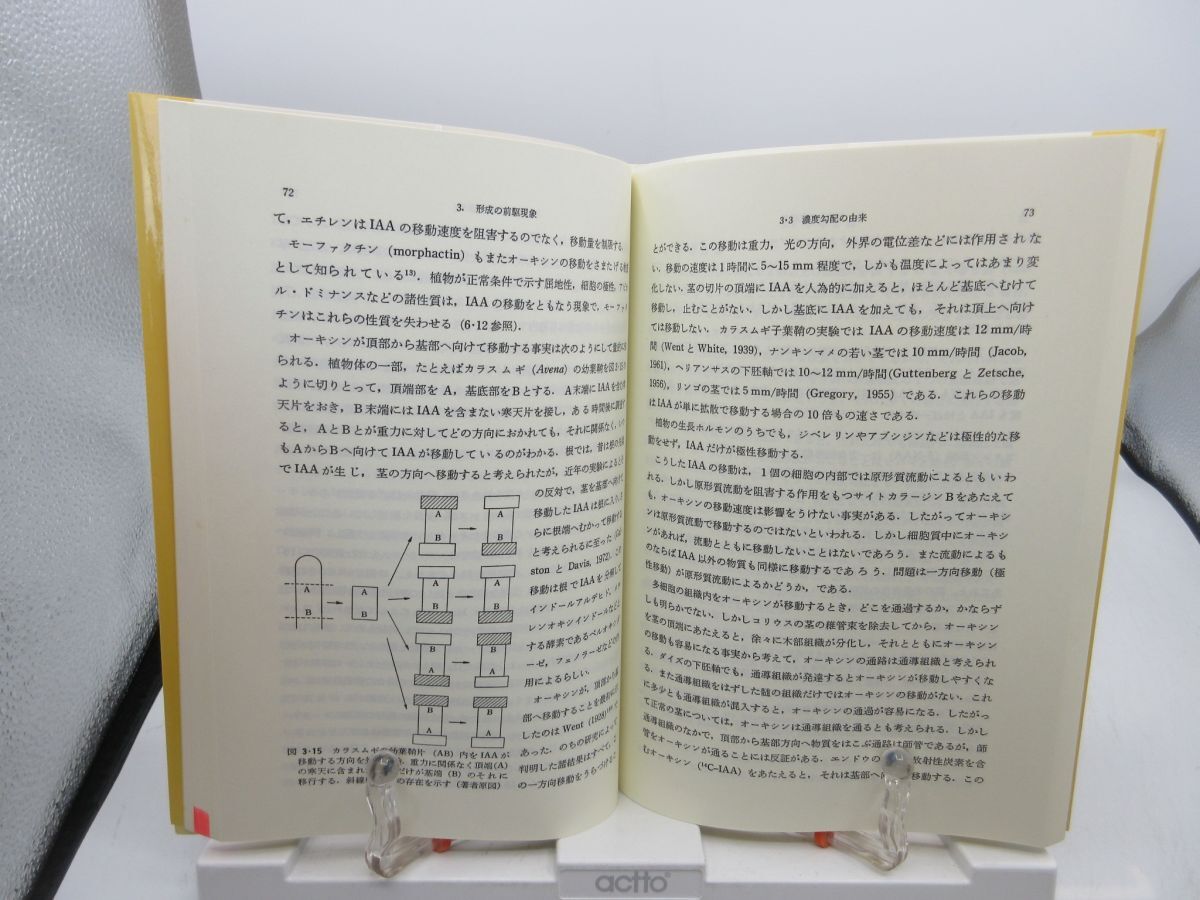 72
3. 形成の前駆現象
て，エチレンは IAA の移動速度を阻害するのでなく，移動量を制限する．
モーファクチン (morphactin) もまたオーキシンの移動をさまたげる
として知られている¹³⁾．植物が正常条件で示す屈地性，細胞の極性，
ル・ドミナンスなどの諸性質は，IAA の移動をともなう現象で，モーファ
チンはこれらの性質を失わせる (6・12 参照)．
オーキシンが頂部から基部へ向けて移動する事実は次のようにして
られる．植物体の一部，たとえばカラスムギ (Avena) の幼葉鞘を図 3・15の
ように切りとって，頂端部を A，基底部を B とする．A 末端に IAA を含む寒
天片をおき，B 末端には IAA を含まない寒天片を接し，ある時間後に調
ると，A と B とが重力に対してどの方向におかれても，それに関係なく，
も A から B へ向けて IAA が移動しているのがわかる．根では，昔は根の
で IAA が生じ，茎の方向へ移動すると考えられたが，近年の実験によると
の反対で，茎を基部へ向けて
移動した IAA は根に入り，さ
らに根端へむかって移動する
と考えられるに至った
ston と Davis, 1972)．この
移動は根で IAA を分解して
インドールアルデヒド，メチ
レンオキシインドールなどと
する酵素であるペルオキシダ
ーゼ，フェノラーゼなどの作
用によるらしい．
オーキシンが，頂部から基
部へ移動することを最初に
したのは Went (1928)
あった．のちの研究によって
判明した諸結果はすべて，こ
の一方向移動をうらづける．
A
B
A
B
A
B
A
B
A
B
A
B
A
B
A
B
B
A
B
A
図 3・15 カラスムギの幼葉鞘片 (AB) 内を IAA が
移動する方向を 重力に関係なく頂端(A)
の寒天に含まれ だけが基端 (B) のそれに
移行する．斜線 の存在を示す (著者原図)
3・3 濃度勾配の由来
73
とができる．この移動は重力，光の方向，外界の電位差などには作用されな
い．移動の速度は 1 時間に 5〜15 mm 程度で，しかも温度によってはあまり変
化しない．茎の切片の頂端に IAA を人為的に加えると，ほとんど基底へむけて
移動し，止むことがない．しかし基底に IAA を加えても，それは頂上へ向け
ては移動しない．カラスムギ子葉鞘の実験では IAA の移動速度は 12 mm/時
間 (Went と White, 1939)，ナンキンマメの若い茎では 10 mm/時間 (Jacob,
1961)，ヘリアンサスの下胚軸では 10〜12 mm/時間 (Guttenberg と Zetsche,
1956)，リンゴの茎では 5 mm/時間 (Gregory, 1955) である．これらの移動
は IAA が単に拡散で移動する場合の 10 倍もの速さである．
植物の生長ホルモンのうちでも，ジベレリンやアブシジンなどは極性的な移
動をせず，IAA だけが極性移動する．
こうした IAA の移動は，1 個の細胞の内部では原形質流動によるともいわ
れる．しかし原形質流動を阻害する作用をもつサイトカラージン B をあたえて
も，オーキシンの移動速度は影響をうけない事実がある．したがってオーキシ
ンは原形質流動で移動するのではないといわれる．しかし細胞質中にオーキシ
ンがあれば，流動とともに移動しないことはないであろう．また流動によるも
のならば IAA 以外の物質も同様に移動するであろう．問題は一方向移動 (極
性移動) が原形質流動によるかどうか，である．
多細胞の組織内をオーキシンが移動するとき，どこを通過するか，かならず
しも明らかでない．しかしコリウスの茎の維管束を除去してから，オーキシン
を茎の頂端にあたえると，徐々に木部組織が分化し，それとともにオーキシン
の移動も容易になる事実から考えて，オーキシンの通路は通導組織と考えられ
る．ダイズの下胚軸でも，通導組織が発達するとオーキシンが移動しやすくな
る．また通導組織をはずした髄の組織だけではオーキシンの移動がない．これ
に多少とも通導組織が混入すると，オーキシンの通過が容易になる．したがっ
て正常の茎については，オーキシンは通導組織を通るとも考えられる．しかし
通導組織のなかで，頂部から基部方向へ物質をはこぶ通路は師管であるが，師
管をオーキシンが通ることには反証がある．エンドウの 放射性炭素を含
むオーキシン (¹⁴C–IAA) をあたえると，それは基部へ 移動する．この
actto